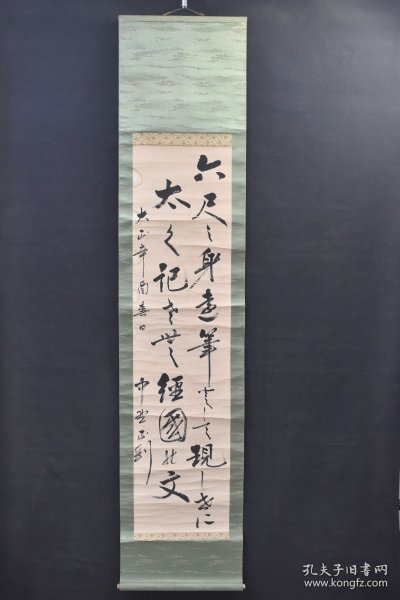 六尺之身遠筆として現しせに
太く記させ 經國の文
大正辛酉春日
中野正剛
孔夫子旧书网
www.kongfz.com